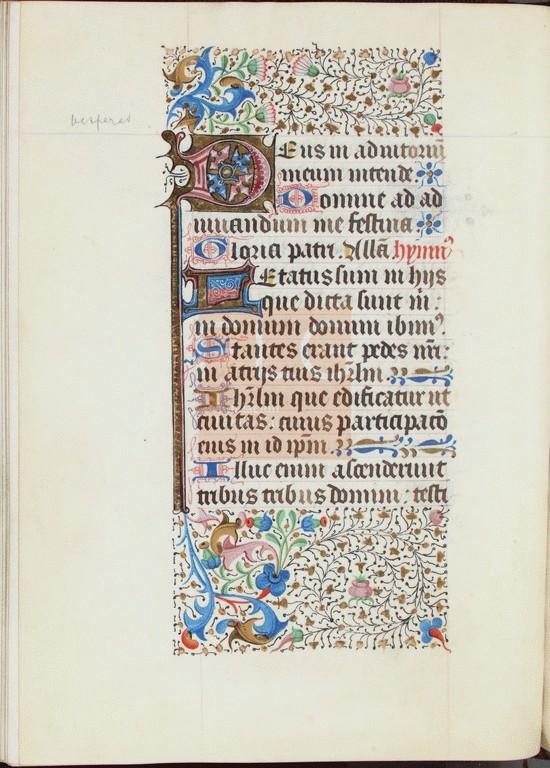 vesperes
Deus in adiutoriū
meum intende
Domine ad ad
iuuandum me festina
Gloria patri. Allā hymn⁹
Letatus sum in hijs
que dicta sunt m̄ :
in domum domini ibim⁹.
Stantes erant pedes nr̄i :
in atrijs tuis ihr̄lm
Ihr̄lm que edificatur ut
ciuitas : cuius participatō
eius in id ipm̄.
Illuc enim ascenderunt
tribus tribus domini : testi